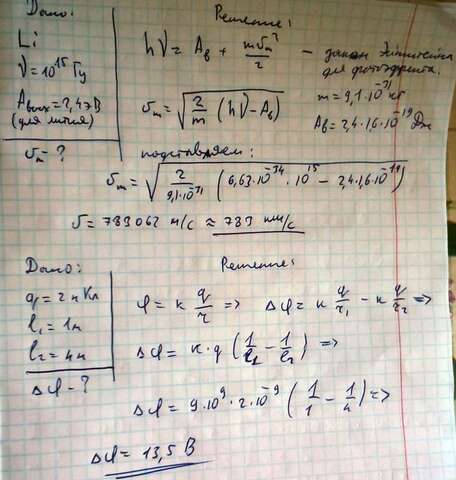 Дано:
Li
ν = 10¹⁵ Гц
Aвых = 2,4 эВ
(для лития)
υm - ?
Решение:
hν = Aв + mυm²/2 - закон Эйнштейна
для фотоэффекта.
m = 9,1·10⁻³¹ кг
Aв = 2,4·1,6·10⁻¹⁹ Дж
υm = √(2/m (hν - Aв))
подставляем:
υm = √(2/9,1·10⁻³¹ (6,63·10⁻³⁴ · 10¹⁵ - 2,4·1,6·10⁻¹⁹))
υ = 783062 м/с ≈ 783 км/с
Дано:
q = 2 нКл
l₁ = 1м
l₂ = 4м
Δφ - ?
Решение:
φ = k q/r => Δφ = k q/r₁ - k q/r₂ =>
Δφ = k·q (1/l₁ - 1/l₂) =>
Δφ = 9·10⁹·2·10⁻⁹ (1/1 - 1/4) =>
Δφ = 13,5 В